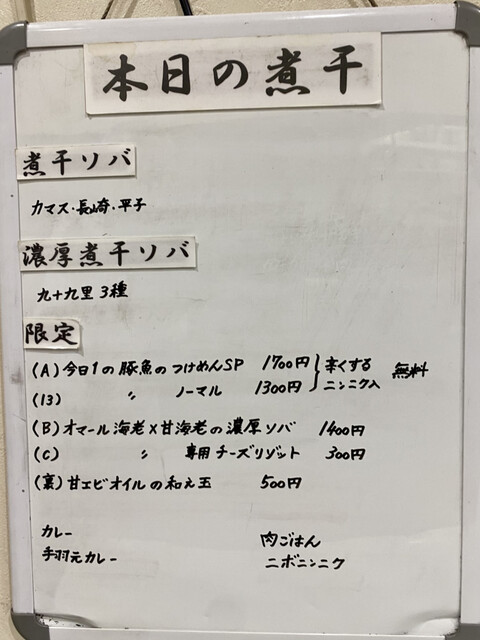 本日の煮干
煮干ソバ
カマス・長崎・平子
濃厚煮干ソバ
九十九里 3種
限定
(A) 今日1の豚魚のつけめんSP 1700円 } 辛くする 無料
(13) 〃 ノーマル 1300円 } ニンニク入
(B) オマール海老×甘海老の濃厚ソバ 1400円
(C) 〃 専用チーズリゾット 300円
(裏) 甘エビオイルの和え玉 500円
カレー 肉ごはん
手羽元カレー ニボニンニク